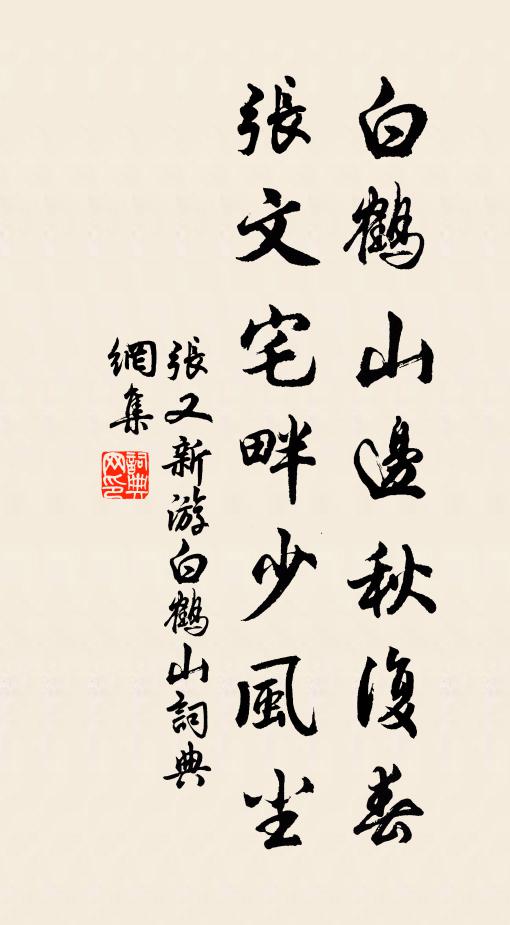 白鶴山邊秋復春
張文宅畔少風尘
張又新游白鶴山詞典
網集
詞典
网印